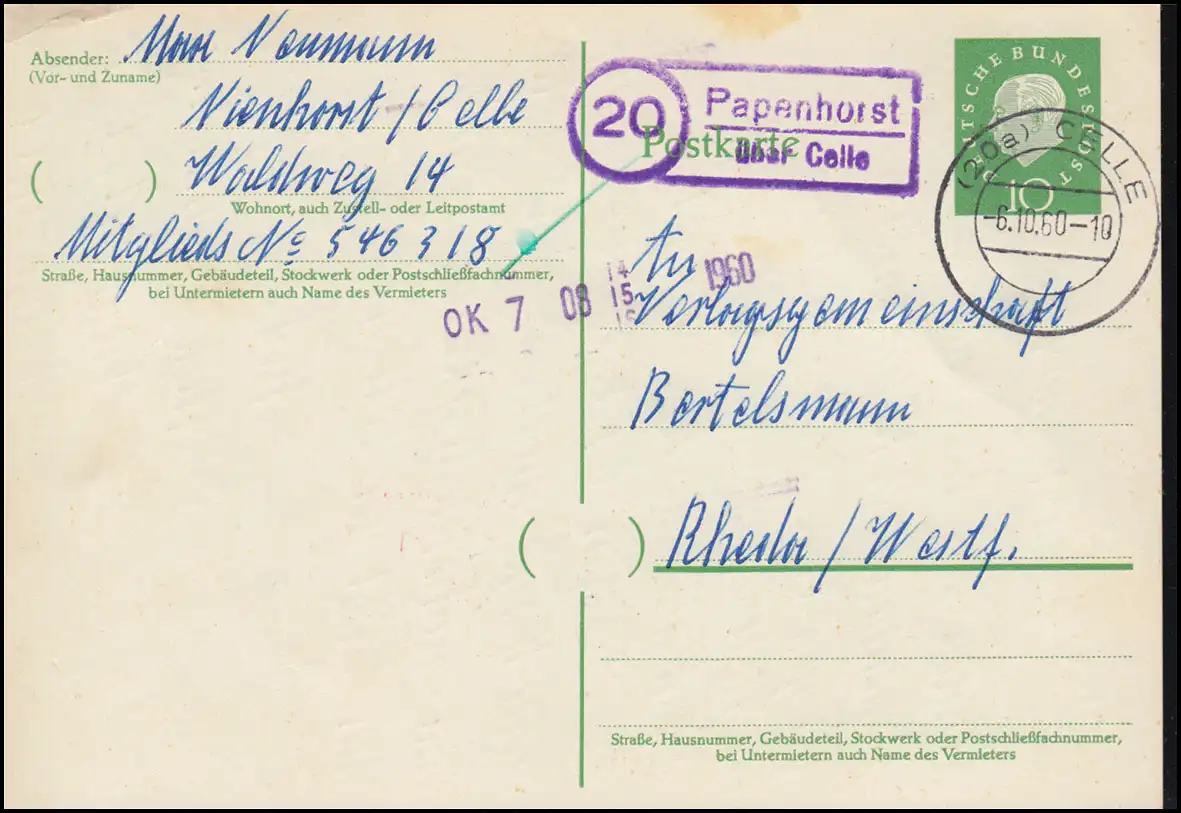 Absender: Max Neumann
(Vor- und Zuname)
Nienhorst / Celle
( ) Waldweg 14
Wohnort, auch Zustell- oder Leitpostamt
Mitglieds No 546318
Straße, Hausnummer, Gebäudeteil, Stockwerk oder Postschließfachnummer,
bei Untermietern auch Name des Vermieters
20
Papenhorst
über Celle
Postkarte
DEUTSCHE BUNDESPOST
10
(20a) CELLE
-6.10.60-10
OK 7 08
14
15
1960
An
Verlagsgemeinschaft
Bertelsmann
( ) Rheda / Westf.
Straße, Hausnummer, Gebäudeteil, Stockwerk oder Postschließfachnummer,
bei Untermietern auch Name des Vermieters